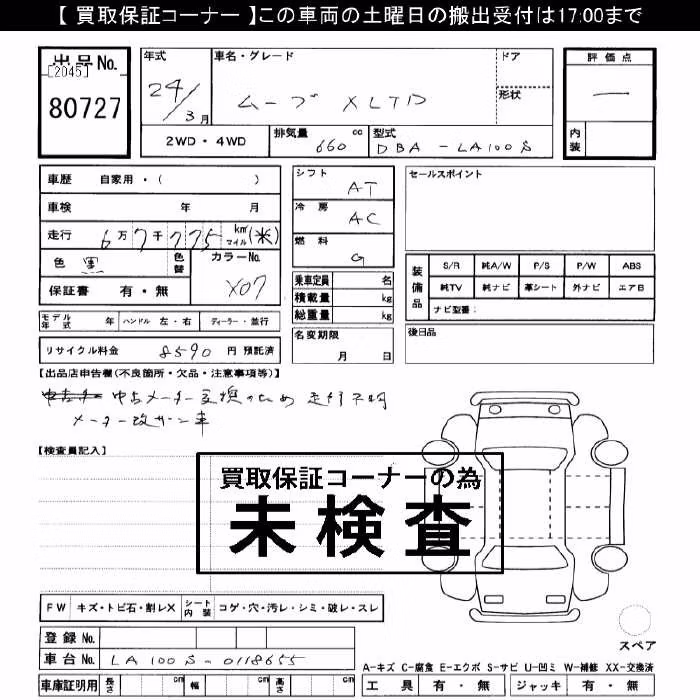 【 買取保証コーナー 】この車両の土曜日の搬出受付は17:00まで
出品No.
[2045]
80727
年式
24/3月
車名・グレード
ムーブ XLTD
ドア
形状
評価点
—
内装
2WD・4WD
排気量 660 cc
型式 DBA - LA100S
車歴 自家用・( )
車検 年 月
走行 6万7千775 km マイル (※)
色 黒
色替
カラーNo. X07
保証書 有・無
シフト AT
冷房 AC
燃料 G
乗車定員 名
積載量 kg
総重量 kg
セールスポイント
装備品
S/R 純A/W P/S P/W ABS
純TV 純ナビ 革シート 外ナビ エアB
ナビ型番：
モデル年式 年 ハンドル 左・右 ディーラー・並行
名変期限 月 日
後日品
リサイクル料金 8590 円 預託済
【出品店申告欄(不良箇所・欠品・注意事項等)】
中古メーター交換のため 走行不明
メーター改ザン車
【検査員記入】
買取保証コーナーの為
未検査
FW キズ・トビ石・割レX シート内装 コゲ・穴・汚レ・シミ・破レ・スレ
スペア
登録No.
車台No. LA100S-0118655
A-キズ C-腐食 E-エクボ S-サビ U-凹ミ W-補修 XX-交換済
車庫証明用 長さ cm 幅 cm 高さ cm
工具 有・無 ジャッキ 有・無